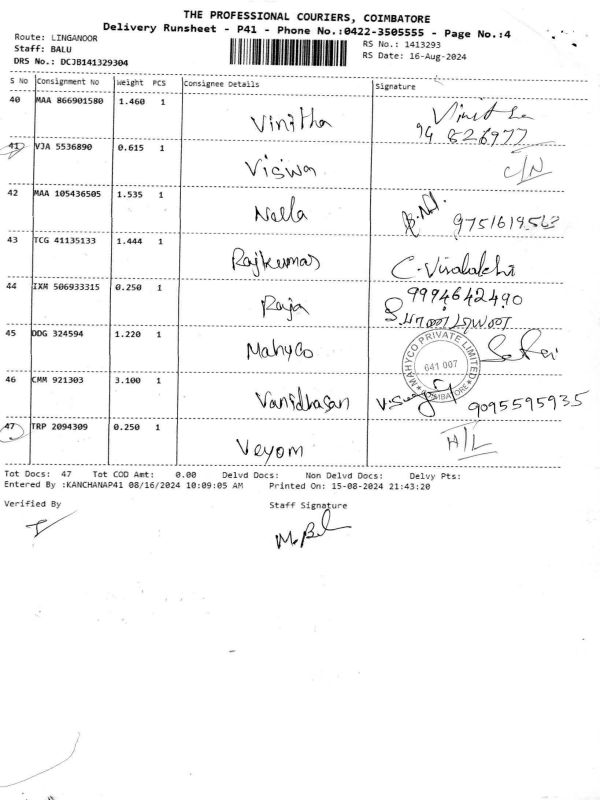 THE PROFESSIONAL COURIERS, COIMBATORE
Delivery Runsheet - P41 - Phone No.:0422-3505555 - Page No.:4
Route: LINGANOOR
Staff: BALU
DRS No.: DCJB141329304
RS No.: 1413293
RS Date: 16-Aug-2024
S No Consignment No Weight PCS Consignee Details Signature
40 MAA 866901580 1.460 1 Vinitha
41 VJA 5536890 0.615 1 Viswa C/N
42 MAA 105436505 1.535 1 Nella 9751619563
43 TCG 41135133 1.444 1 Rajkumar C. Visalakshi
44 IXM 506933315 0.250 1 Raja 9994642490
45 DDG 324594 1.220 1 Mahyco
MAHYCO PRIVATE LIMITED
641 007
COIMBATORE
46 CMM 921303 3.100 1 Vanidhasan 9095595935
47 TRP 2094309 0.250 1 Veyom H/L
Tot Docs: 47 Tot COD Amt: 0.00 Delvd Docs: Non Delvd Docs: Delvy Pts:
Entered By :KANCHANAP41 08/16/2024 10:09:05 AM Printed On: 15-08-2024 21:43:20
Verified By Staff Signature